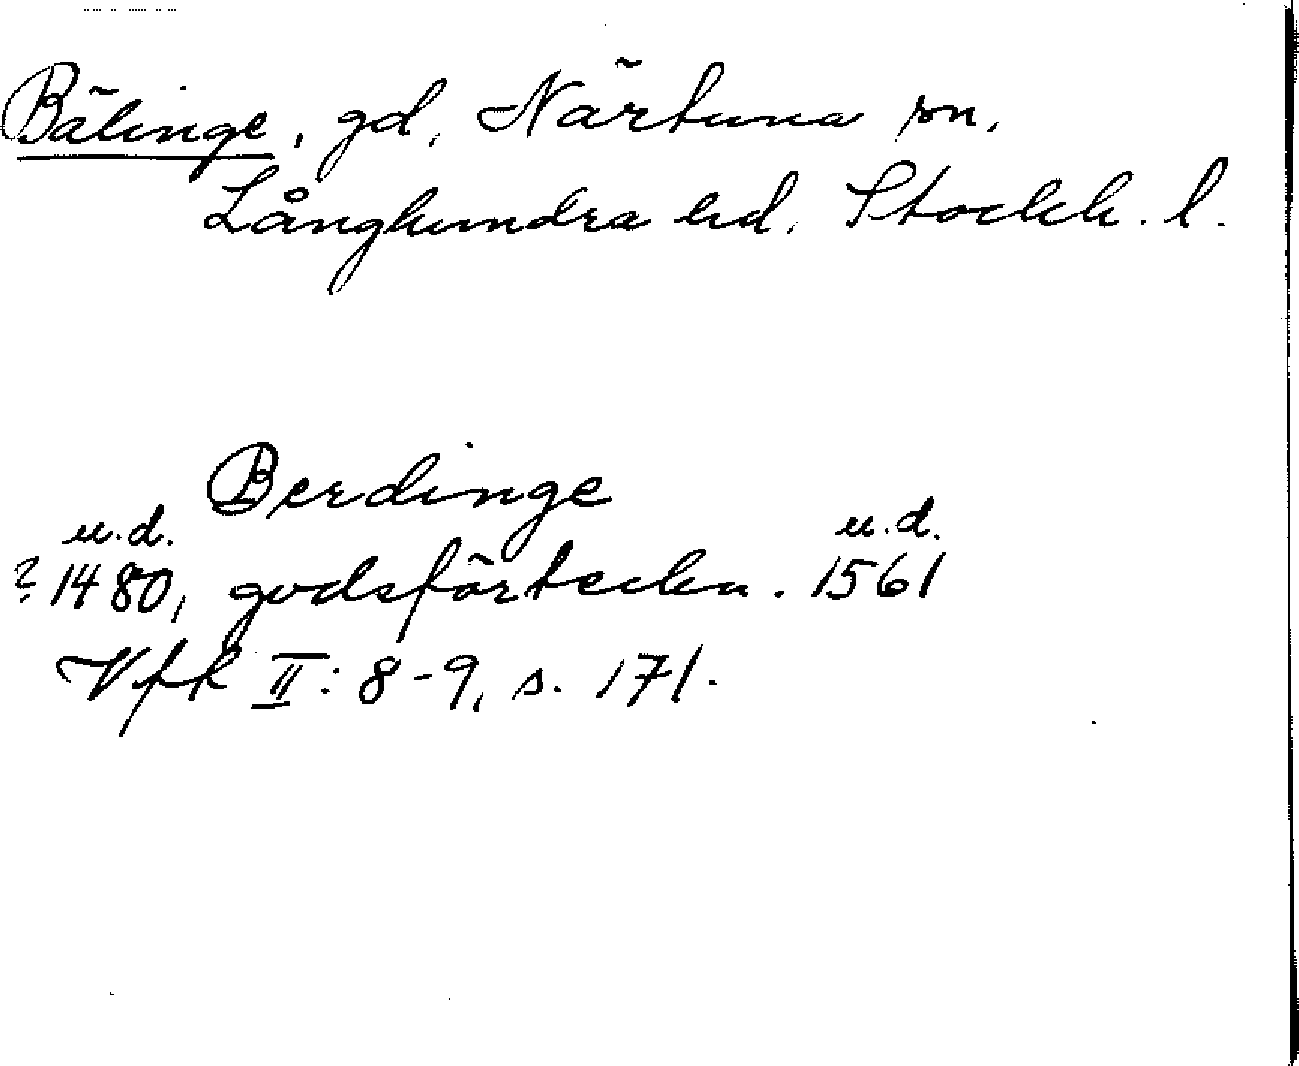 Bälinge, gd, Närtuna sn,
Långhundra hd, Stockh. l.
Berdinge
u.d. u.d.
? 1480, godsförteckn. 1561
Vfk II: 8-9, s. 171.